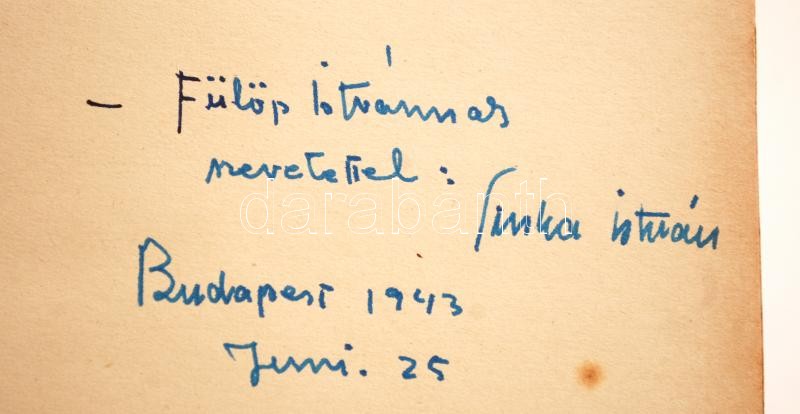 – Fülöp Istvánnak
szeretettel :
Sinka istván
Budapest 1943
Juni. 25
darabanth